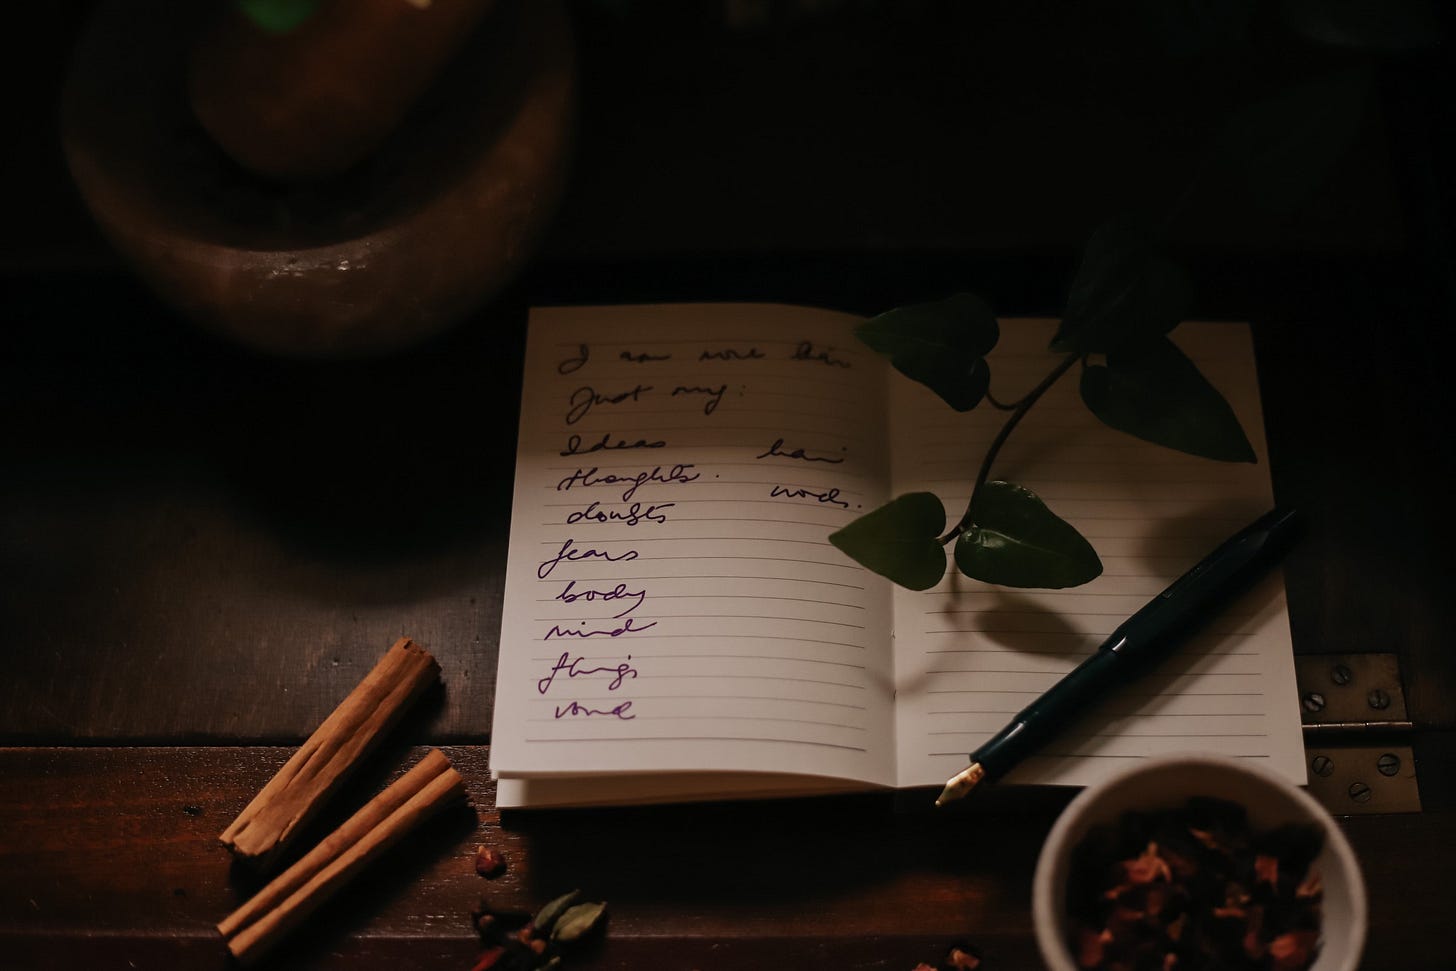 I am more than
Just my:
Ideas
thoughts.
doubts
fears
body
mind
things
hair
words.